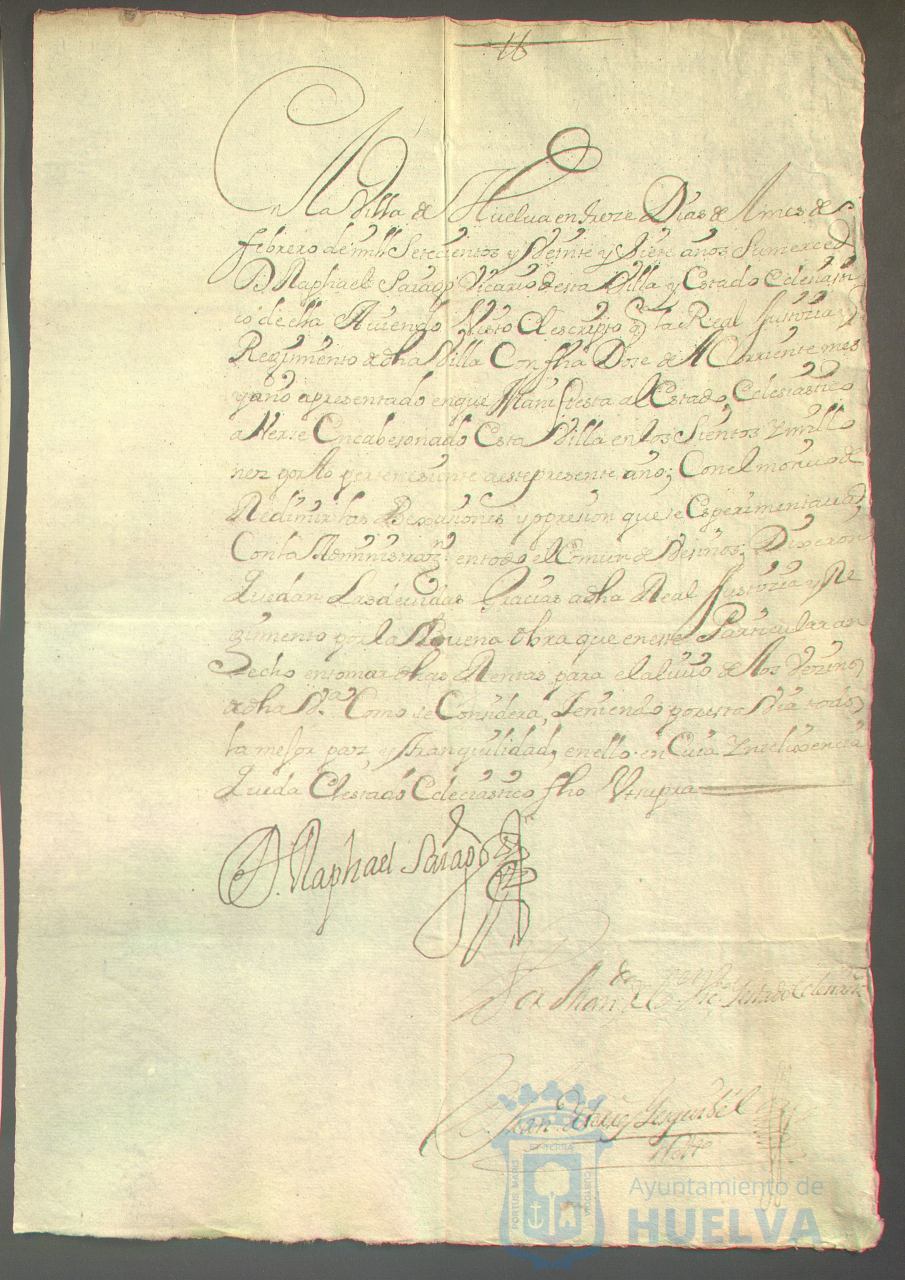 16
En la Villa de Huelva en treze Dias de el mes de
febrero de mill Setecientos y Veinte y Siete años Su merced
D. Raphael Sarago Vicario de esta Villa y Estado Eclesiasti
co de ella Auiendo Visto El escripto q la Real Justicia y
Regimento de dha Villa Con fha Dose de el Corriente mes
y año a presentado en que Manifiesta al Estado Eclesiastico
a Verse Encabesonado Esta Villa en los Sientos y millo
nes por lo perteneziente a este presente año; Con el motiuo de
Redimir las Bexasiones y opresion que se Esperimentaua
Con la Administraz.n en todo el Comun de Vesinos; Dixeron
Quedan Las deuidas Gracias a dha Real Justicia y Re
gimento por la Buena Obra que en este Particular an
Hecho en tomar dhas Rentas para el aliuio de los Vezinos
de dha V.a Como se Considera, Teniendo por esta Via todos
la mejor paz y tranquilidad, en ello en Cuia Yntelixencia
Queda El estado Eclesiastico fho Vt supra
D. Raphael Sarago
Por Man.do de el S.r Vic.o y Estado Eclesiastico
Juan Esquibel
Notto
PORTUS MARIS
ET TERRAE
CUSTODIA
Ayuntamiento de
HUELVA